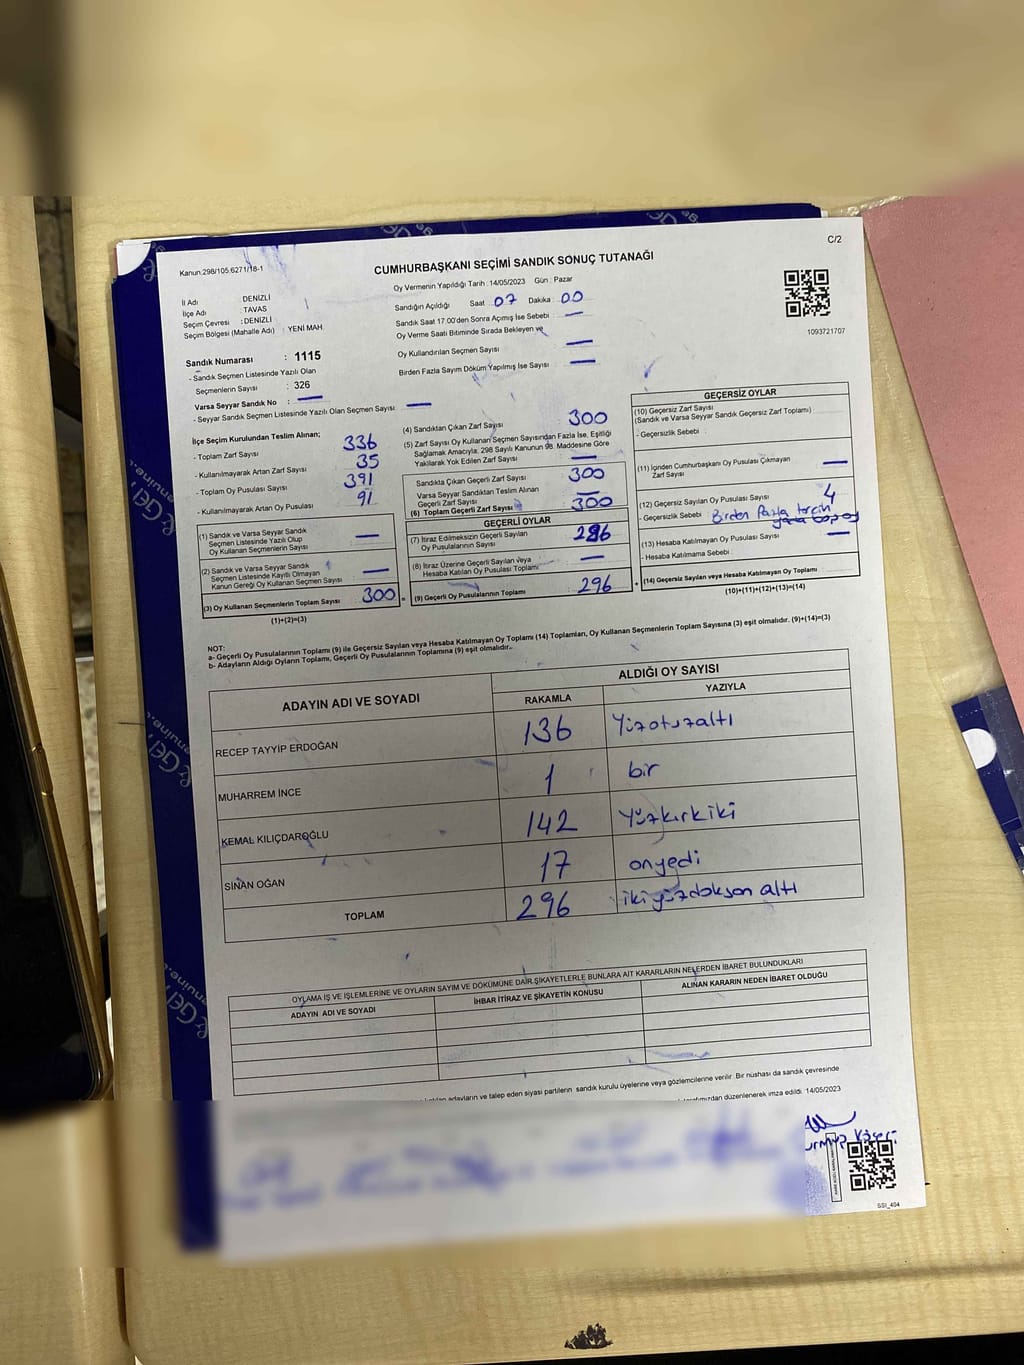 C/2
Kanun:298/105.6271/18-1
CUMHURBAŞKANI SEÇİMİ SANDIK SONUÇ TUTANAĞI
Oy Vermenin Yapıldığı Tarih : 14/05/2023 Gün : Pazar
İl Adı : DENİZLİ
İlçe Adı : TAVAS
Seçim Çevresi : DENİZLİ
Seçim Bölgesi (Mahalle Adı) : YENİ MAH.
Sandığın Açıldığı Saat 07 Dakika 00
Sandık Saat 17.00'den Sonra Açılmış İse Sebebi : —
Oy Verme Saati Bitiminde Sırada Bekleyen ve
Oy Kullandırılan Seçmen Sayısı —
Birden Fazla Sayım Döküm Yapılmış İse Sayısı : —
1093721707
Sandık Numarası : 1115
- Sandık Seçmen Listesinde Yazılı Olan
Seçmenlerin Sayısı : 326
Varsa Seyyar Sandık No : —
- Seyyar Sandık Seçmen Listesinde Yazılı Olan Seçmen Sayısı —
İlçe Seçim Kurulundan Teslim Alınan;
- Toplam Zarf Sayısı 336
- Kullanılmayarak Artan Zarf Sayısı 35
- Toplam Oy Pusulası Sayısı 391
- Kullanılmayarak Artan Oy Pusulası 91
(1) Sandık ve Varsa Seyyar Sandık
Seçmen Listesinde Yazılı Olup
Oy Kullanan Seçmenlerin Sayısı —
(2) Sandık ve Varsa Seyyar Sandık
Seçmen Listesinde Kayıtlı Olmayan
Kanun Gereği Oy Kullanan Seçmen Sayısı —
(3) Oy Kullanan Seçmenlerin Toplam Sayısı 300 =
(1)+(2)=(3)
(4) Sandıktan Çıkan Zarf Sayısı 300
(5) Zarf Sayısı Oy Kullanan Seçmen Sayısından Fazla İse, Eşitliği
Sağlamak Amacıyla, 298 Sayılı Kanunun 98. Maddesine Göre
Yakılarak Yok Edilen Zarf Sayısı —
Sandıkta Çıkan Geçerli Zarf Sayısı 300
Varsa Seyyar Sandıktan Teslim Alınan
Geçerli Zarf Sayısı —
(6) Toplam Geçerli Zarf Sayısı 300
GEÇERLİ OYLAR
(7) İtiraz Edilmeksizin Geçerli Sayılan
Oy Pusulalarının Sayısı 296
(8) İtiraz Üzerine Geçerli Sayılan veya
Hesaba Katılan Oy Pusulası Toplamı —
(9) Geçerli Oy Pusulalarının Toplamı 296 +
GEÇERSİZ OYLAR
(10) Geçersiz Zarf Sayısı
(Sandık ve Varsa Seyyar Sandık Geçersiz Zarf Toplamı)
- Geçersizlik Sebebi :
(11) İçinden Cumhurbaşkanı Oy Pusulası Çıkmayan
Zarf Sayısı —
(12) Geçersiz Sayılan Oy Pusulası Sayısı 4
- Geçersizlik Sebebi : Birden fazla tercih
(13) Hesaba Katılmayan Oy Pusulası Sayısı —
- Hesaba Katılmama Sebebi :
(14) Geçersiz Sayılan veya Hesaba Katılmayan Oy Toplamı :
(10)+(11)+(12)+(13)=(14)
NOT:
a- Geçerli Oy Pusulalarının Toplamı (9) ile Geçersiz Sayılan veya Hesaba Katılmayan Oy Toplamı (14) Toplamları, Oy Kullanan Seçmenlerin Toplam Sayısına (3) eşit olmalıdır. (9)+(14)=(3)
b- Adayların Aldığı Oyların Toplamı, Geçerli Oy Pusulalarının Toplamına (9) eşit olmalıdır.
ADAYIN ADI VE SOYADI ALDIĞI OY SAYISI
RAKAMLA YAZIYLA
RECEP TAYYİP ERDOĞAN 136 Yüzotuzaltı
MUHARREM İNCE 1 bir
KEMAL KILIÇDAROĞLU 142 Yüzkırkiki
SİNAN OĞAN 17 onyedi
TOPLAM 296 iki yüzdoksan altı
OYLAMA İŞ VE İŞLEMLERİNE VE OYLARIN SAYIM VE DÖKÜMÜNE DAİR ŞİKAYETLERLE BUNLARA AİT KARARLARIN NELERDEN İBARET BULUNDUKLARI
ADAYIN ADI VE SOYADI İHBAR İTİRAZ VE ŞİKAYETİN KONUSU ALINAN KARARIN NEDEN İBARET OLDUĞU
adayların ve talep eden siyasi partilerin sandık kurulu üyelerine veya gözlemcilerine verilir. Bir nüshası da sandık çevresinde
düzenlenerek imza edildi. 14/05/2023
SSI_494